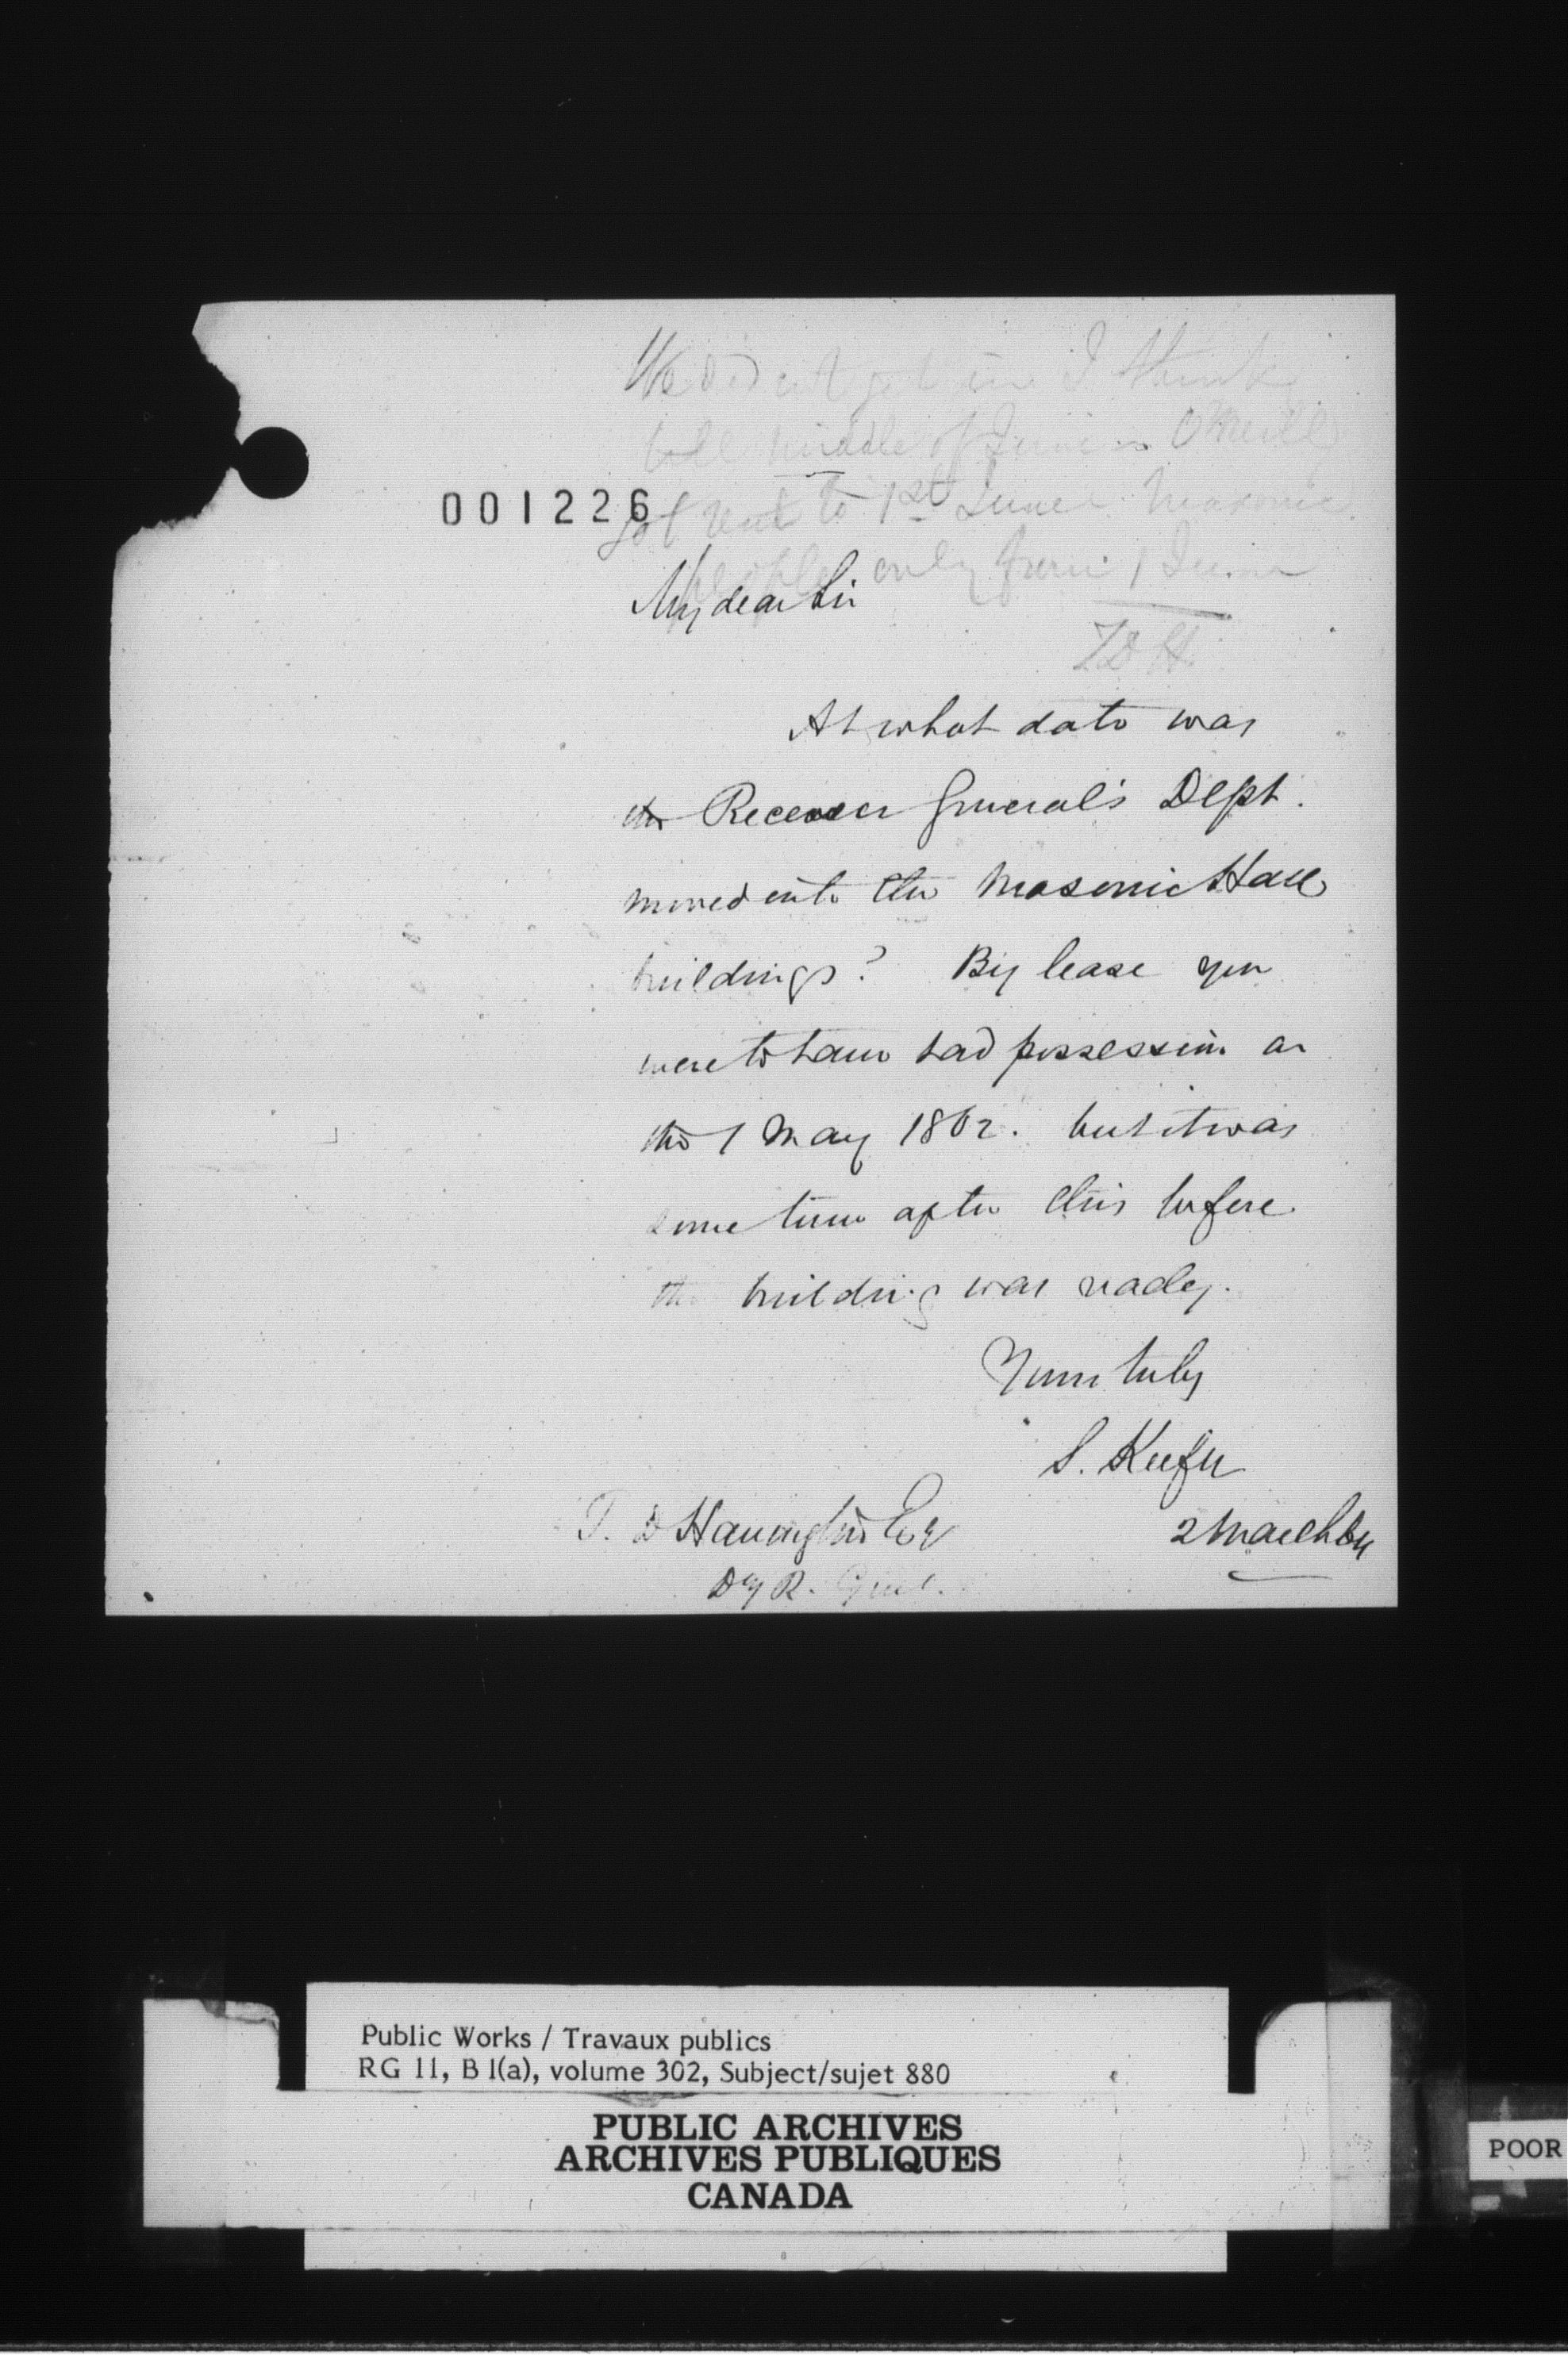 We did not get in I think
till middle of June. O'Neill
001226
got rent to 1st June. Masonic
people only from 1 June
TDH
My dear Sir
At what date was
the Receiver General's Dept.
moved into the Masonic Hall
buildings? By lease you
were to have had possession on
the 1 May 1862. but it was
some time after this before
the building was ready.
Yours truly
S. Keefer
2 March 64
T. D Harington Esq
Dy R. Genl.
Public Works / Travaux publics
RG 11, B 1(a), volume 302, Subject/sujet 880
PUBLIC ARCHIVES
ARCHIVES PUBLIQUES
CANADA
POOR